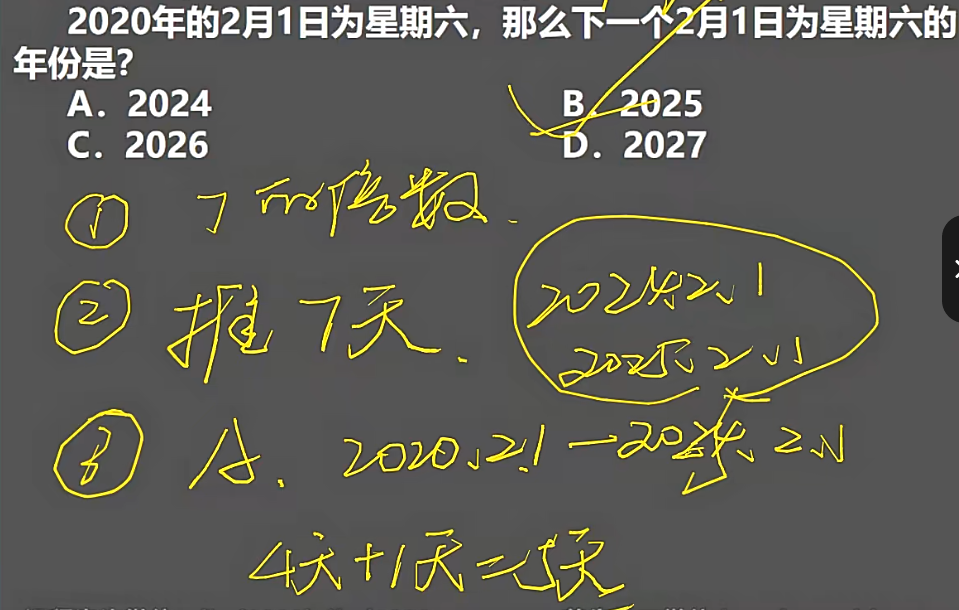 2020年的2月1日为星期六，那么下一个2月1日为星期六的
年份是？
A．2024 B．2025
C．2026 D．2027
① 7的倍数．
② 推7天．
2024.2.1
2025.2.1
③ A．2020.2.1—2024.2.1
4天+1天=5天